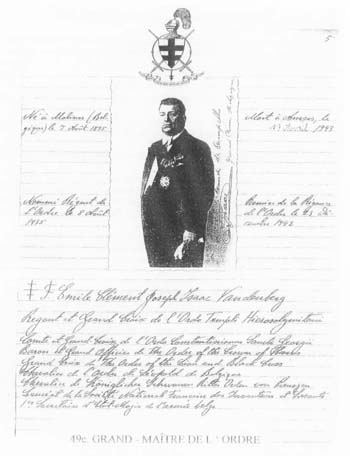 5
Né à Malines (Bel-
gique) le 7 Août 1895
Mort à Anvers, le
1943
Nommé Régent de
l'Ordre le 8 Août
1935
Remise de la Régence
de l'Ordre le 23 Dé-
cembre 1942
‡ F Emile Clément Joseph Isaac Vandenberg
Régent et Grand Croix de l'Ordo Templi Hierosolymitani
Comte et Grand Croix de l'Ordo Constantinianum Sancti Georgii
Baron et Grand Officier de The Order of the Crown of
Grand Croix de The Order of the Lion and Black Cross
Chevalier de l'Ordre de Léopold de Belgique
Chevalier de Königlicher Ritter Orden von
de la Société Nationale Française des Inventeurs et Savants
1er Secrétaire d'Etat-Major de l'armée belge
49e GRAND - MAÎTRE DE L' ORDRE